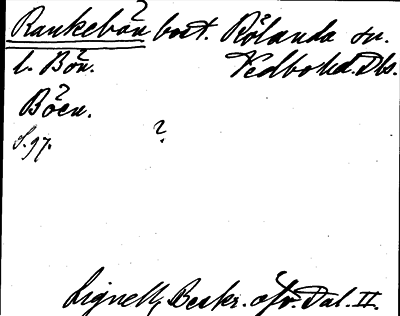 Rankebön bost. Rölanda sn.
l. Bön. Vedbo hd. Dbs.
?
Böen.
S. 97. ?
Lignell, Beskr. öfv. Dal. II.